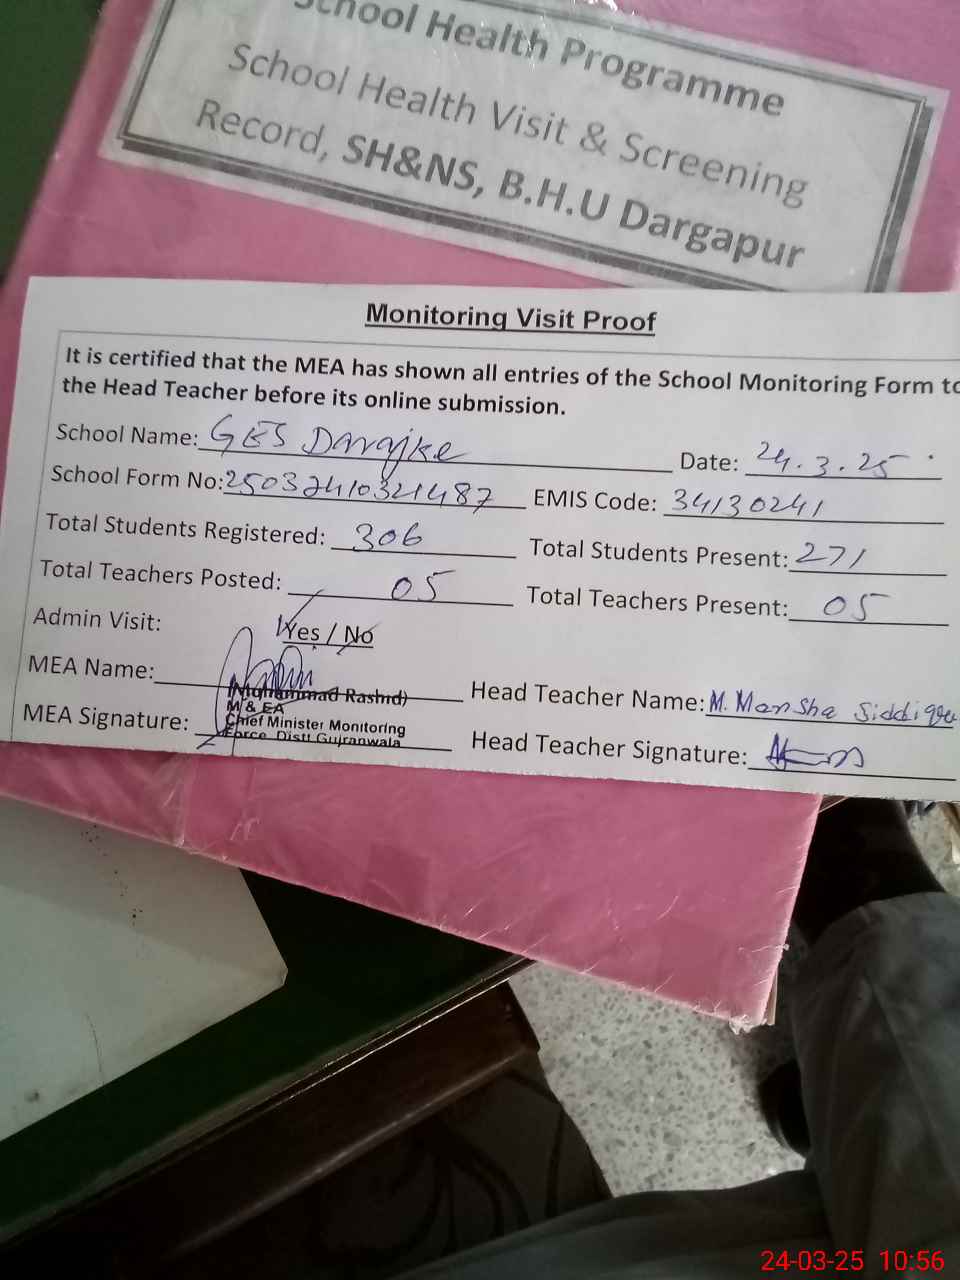 School Health Programme
School Health Visit & Screening
Record, SH&NS, B.H.U Dargapur
Monitoring Visit Proof
It is certified that the MEA has shown all entries of the School Monitoring Form to
the Head Teacher before its online submission.
School Name: GES Darajke Date: 24.3.25
School Form No: 25032410321487 EMIS Code: 34130241
Total Students Registered: 306 Total Students Present: 271
Total Teachers Posted: 05 Total Teachers Present: 05
Admin Visit: Yes / No
MEA Name: (Muhammad Rashid) Head Teacher Name: M. Mansha Siddique
M & EA
MEA Signature: Chief Minister Monitoring Head Teacher Signature:
Force Distt Gujranwala
24-03-25 10:56